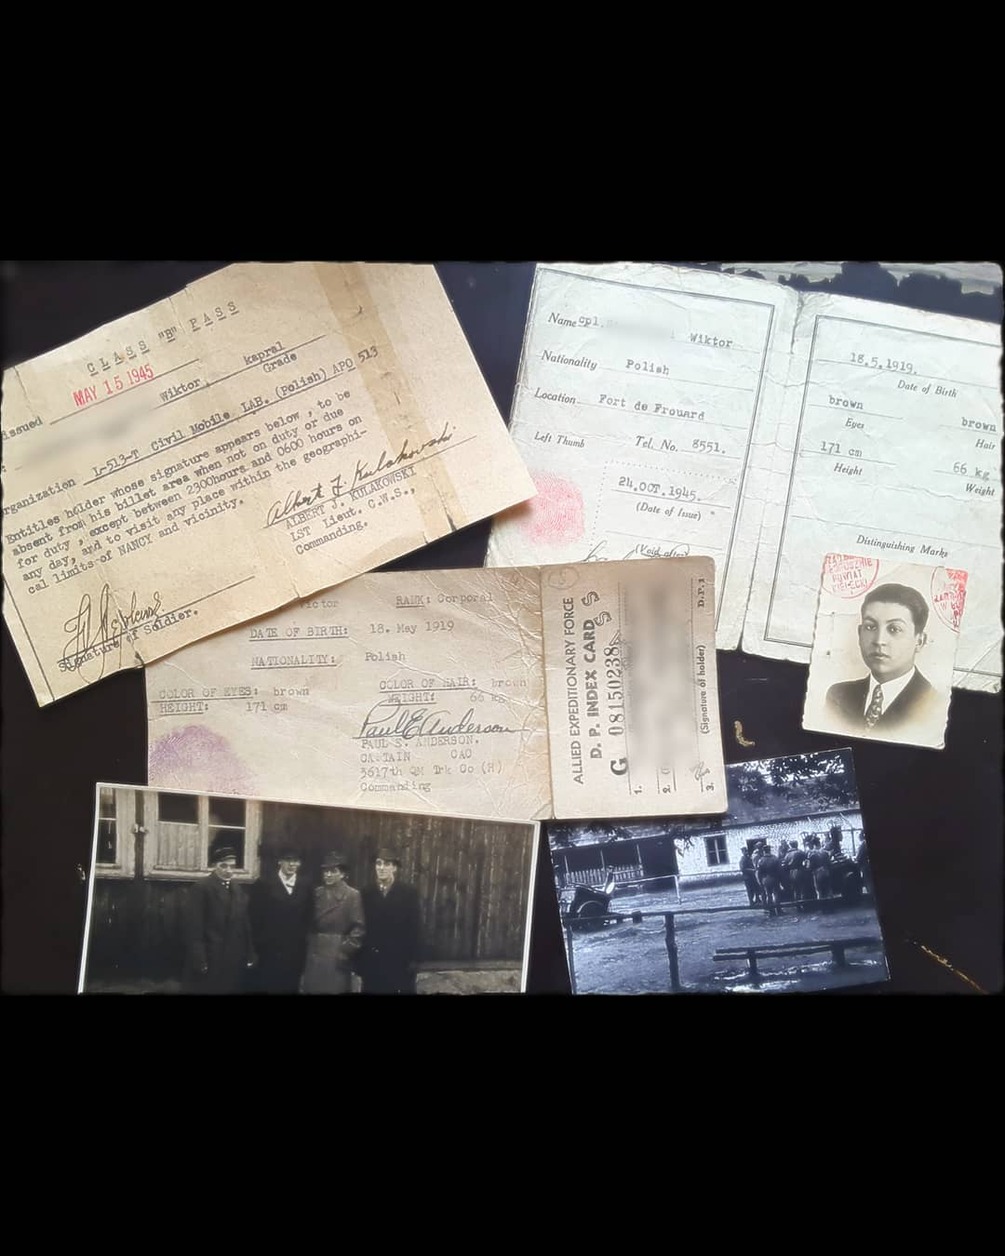 CLASS "B" PASS
MAY 15 1945
Issued
Wiktor, kapral
Grade
organization L-513-T Civil Mobile LAB. (Polish) APO 513
Entitles holder whose signature appears below, to be
absent from his billet area when not on duty or due
for duty, except between 2300hours and 0600 hours on
any day, and to visit any place within the geographi-
cal limits of NANCY and vicinity.
Albert J. Kulakowski
ALBERT J. KULAKOWSKI
1ST Lieut. C.W.S.,
Commanding.
Signature of Soldier.
Name cpl. Wiktor
Nationality Polish
Location Fort de Frouard
Left Thumb Tel. No. 8551.
24.OCT.1945.
(Date of Issue)
(Void after)
18.5.1919.
Date of Birth
brown brown
Eyes Hair
171 cm 66 kg
Height Weight
Distinguishing Marks
POWIAT
KIELECKI
Victor RANK: Corporal
DATE OF BIRTH: 18. May 1919
NATIONALITY: Polish
COLOR OF EYES: brown COLOR OF HAIR: brown
HEIGHT: 171 cm WEIGHT: 66 kg
Paul E Anderson
PAUL E. ANDERSON.
CAPTAIN CAC
3617th QM Trk Co (H)
Commanding
ALLIED EXPEDITIONARY FORCE
D. P. INDEX CARD
G 08150238
1.
2.
3. (Signature of holder)
D.P.1